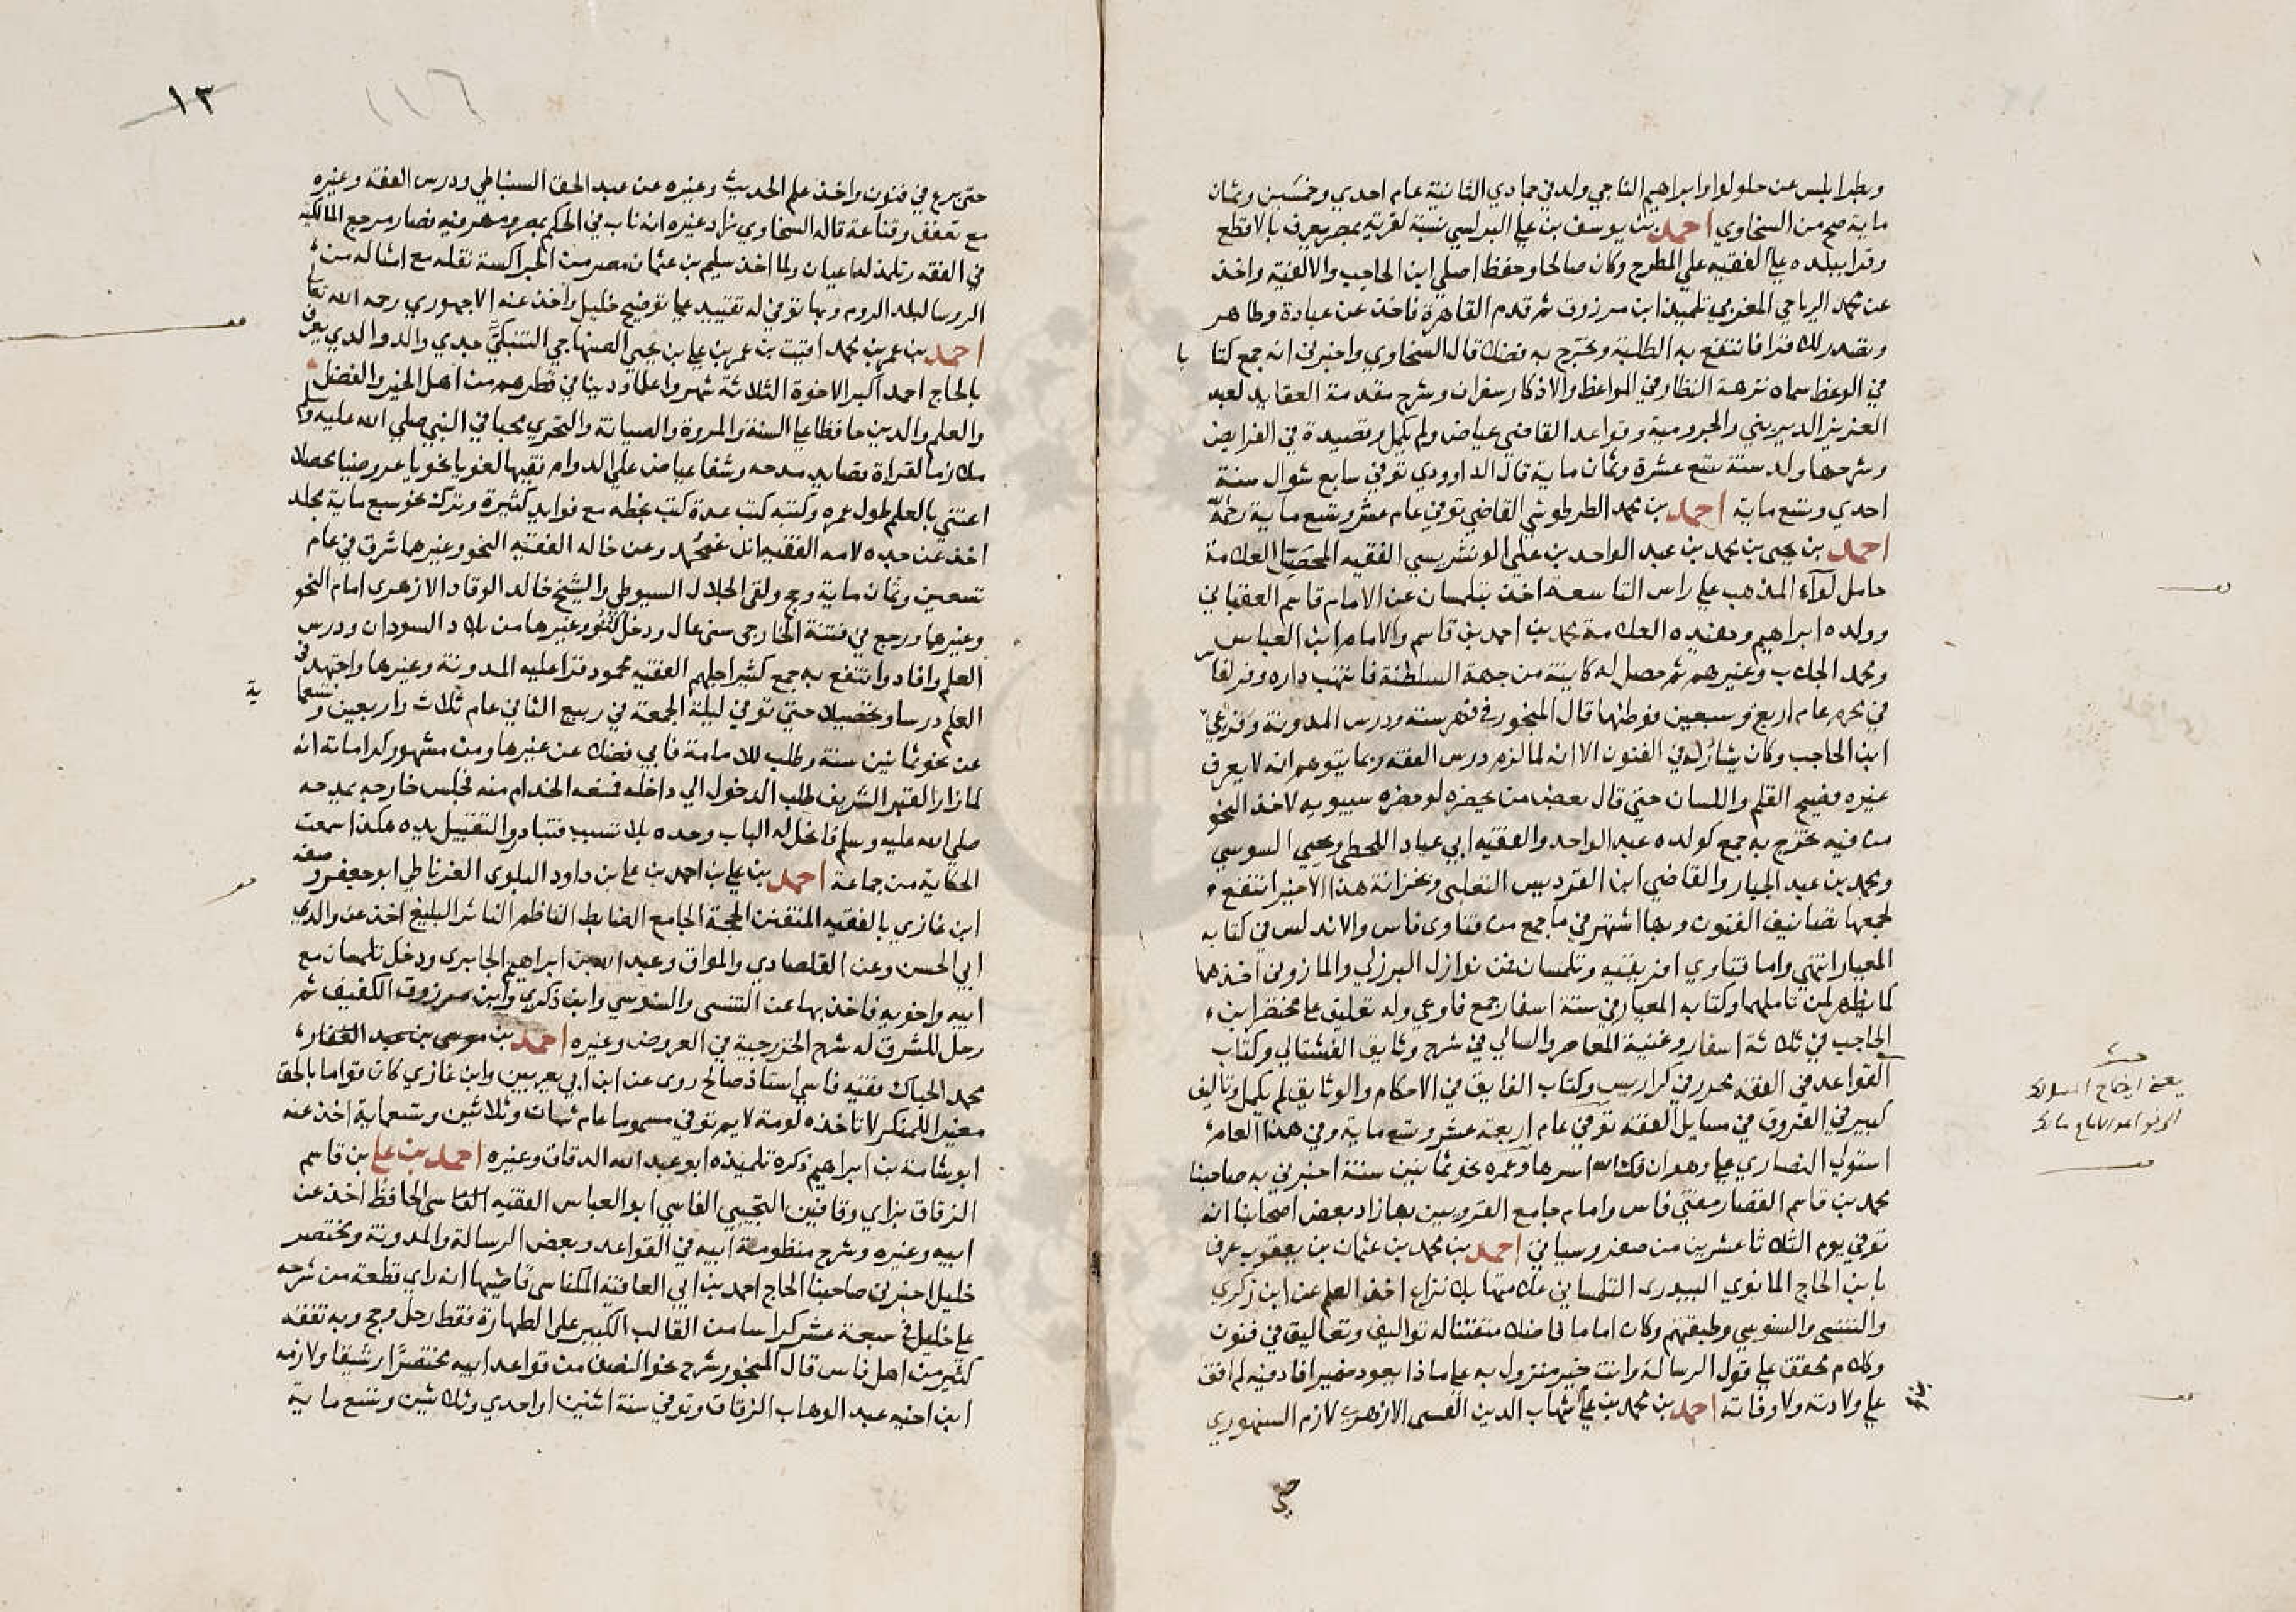 وبطرابلس عن حلولوا وابراهيم الناجي ولد في جمادي الثانية عام احدي وخمسين وثمان
ماية صح من السخاوي احمد بن يوسف بن علي البرلسي نسبة لقرية بمصر يعرف بالاقطع
وقرا ببلده علي الفقيه علي المطرح وكان صالحا وحفظ اصلي ابن الحاجب والالفية واخذ
عن محمد الرياحي المغربي تلميذ ابن مرزوق ثم قدم القاهرة فاخذ عن عبادة وطاهر
وتصدر للاقرا فانتفع به الطلبة وتخرج به فضلا قال السخاوي واخبرني انه جمع كتابا
في الوعظ سماه نزهة النظار في المواعظ والاذكار سفران وشرح مقدمة العقايد لعبد
العزيز الديريني والجرومية وقواعد القاضي عياض ولم يكمل وقصيدة في الفرايض
وشرحها ولد سنة تسع عشرة وثمان ماية قال الداوودي توفي سابع شوال سنة
احدي وتسع ماية احمد بن محمد الطرطوشي القاضي توفي عام عشر وتسع ماية رحمه الله
احمد بن يحيى بن محمد بن عبد الواحد بن علي الونشريسي الفقيه المحصل العلامة
حامل لوآء المذهب علي راس التاسعة اخذ بتلمسان عن الامام قاسم العقباني
وولده ابراهيم وحفيده العلامة محمد بن احمد بن قاسم والامام ابن العباس
ومحمد الجلاب وغيرهم ثم حصل له كاينة من جهة السلطنة فانتهب داره وفر لفاس
في محرم عام اربع وسبعين فوطنها قال المنجور في فهرسته ودرس المدونة وفرعي
ابن الحاجب وكان يشارك في الفنون الا انه لما لزم درس الفقه ربما يتوهم انه لا يعرف
غيره فصيح القلم واللسان حتي قال بعض من يحضره لو حضره سيبويه لاخذ النحو
من فيه تخرج به جمع كولده عبد الواحد والفقيه ابي عباد اللمطي ويحيي السوسي
ومحمد بن عبد الجبار والقاضي ابن الغرديس التغلبي وبخزانة هذا الاخير انتفع
لجمعها تصانيف الفنون وبها اشتهر في ما جمع من فتاوى فاس والاندلس في كتابه
المعيار انتهي واما فتاوي افريقيه وتلمسان فمن نوازل البرزلي والمازوني اخذهما
كما يظهر لمن تاملهما وكتابه المعيار في ستة اسفار جمع فاوعي وله تعليق علي مختصر ابن
الحاجب في ثلاثة اسفار وغنية المعاصر والتالي في شرح وثايق الفشتالي وكتاب
القواعد في الفقه محرر في كراريس وكتاب الفايق في الاحكام والوثايق لم يكمل وتاليف
كبير في الفروق في مسايل الفقه توفي عام اربعة عشر وتسع ماية وفي هذا العام
استولي النصاري علي وهران فك الله اسرها وعمره نحو ثمانين سنة اخبرني به صاحبنا
محمد بن قاسم القصار مفتي فاس وامام جامع القرويين بها زاد بعض اصحابنا انه
توفي يوم الثلاثا عشرين من صفر وسياتي احمد بن محمد بن عثمان بن يعقوب عرف
بابن الحاج المانوي البيدرى التلمساني علامتها بلا نزاع اخذ العلم عن ابن زكري
والتنسي والسنوسي وطبقتهم وكان اماما فاضلا متفننا له تواليف وتعاليق في فنون
وكلام محقق علي قول الرسالة وانت خير منزول به علي ماذا يعود ضمير افاد فيه لم اقف
علي ولادته ولا وفاته احمد بن محمد بن علي شهاب الدين الفيسي الازهري لازم السنهوري
حتي
يعني ايضاح المسالك
الي قواعد الامام مالك
١٣
١١٦
حتى برع في فنون واخذ علم الحديث وغيره عن عبد الحق السنباطي ودرس الفقه وغيره
مع تعفف وقناعة قاله السخاوي زاد غيره انه ناب في الحكم بمصر ومهر فيه فصار مرجع المالكية
في الفقه وتلمذ له اعيان ولما اخذ سليم بن عثمان مصر من الجراكسة نقله مع امثاله من
الروسا لبلد الروم وبها توفي له تقييد علي توضيح خليل واخذ عنه الاجهوري رحمه الله تعالى
احمد بن عمر بن محمد اقيت بن عمر بن علي بن يحيى الصنهاجي التنبكتي جدي والد والدي يعرف
بالحاج احمد اكبر الاخوة الثلاثة شهروا علما ودينا في قطرهم من اهل الخير والفضل
والعلم والدين حافظا علي السنة والمروة والصيانة والتحري محبا في النبي صلي الله عليه وسلم
ملازما لقراة قصايد مدحه وشفا عياض علي الدوام فقيها لغويا نحويا عروضيا محصلا
اعتني بالعلم طول عمره وكتبه كتب عدة كتب بخطه مع فوايد كثيرة وترك نحو سبع ماية مجلد
اخذ عن جده لامه الفقيه اند غمحمد وعن خاله الفقيه النحو وغيرها شرق في عام
تسعين وثمان ماية وحج ولقى الجلال السيوطي والشيخ خالد الوقاد الازهرى امام النحو
وغيرهما ورجع في فتنة الخارجى سنى عال ودخل كنو وغيرها من بلاد السودان ودرس
العلم وافاد وانتفع به جمع كثير اجلهم الفقيه محمود قرا عليه المدونة وغيرها واجتهد في
العلم درسا وتحصيلا حتي توفي ليلة الجمعة في ربيع الثاني عام ثلاث واربعين وتسعماية
عن نحو ثمانين سنة وطلب للامامة فابي فضلا عن غيرها ومن مشهور كراماته انه
لما زار القبر الشريف طلب الدخول الي داخله فمنعه الخدام منه فجلس خارجه يمدحه
صلي الله عليه وسلم فانحل له الباب وحده بلا تسبب فتبادروا لتقبيل يده هكذا سمعت
الحكاية من جماعة احمد بن علي بن احمد بن علي بن داود البلوى الغرناطي ابو جعفر وصفه
ابن غازي بالفقيه المتفنن الحجة الجامع الضابط الناظم الناثر البليغ اخذ عن والدي
ابي الحسن وعن القلصادي والمواق وعبد الله بن ابراهيم الجابرى ودخل تلمسان مع
ابيه واخويه فاخذ بها عن التنسى والسنوسي وابن ذكري وابن مرزوق الكفيف ثم
رحل للمشرق له شرح الخزرجية في العروض وغيره احمد بن موسى بن عبد الغفار
محمد الحباك فقيه فاسي استاذ صالح روى عن ابن ابي يعربين وابن غازي كان قواما بالحق
مغيرا للمنكر لا تاخذه لومة لايم توفي مسموما عام ثمان وثلاثين وتسعماية اخذ عنه
ابو شامة بن ابراهيم ذكره تلميذه ابو عبد الله الدقان وغيره احمد بن علي بن قاسم
الزقاق بزاي وقافين التجيبي الفاسي ابو العباس الفقيه الفاسى الحافظ اخذ عن
ابيه وغيره وشرح منظومة ابيه في القواعد وبعض الرسالة والمدونة ومختصر
خليل اخبرني صاحبنا الحاج احمد بن ابي العافية المكناسى قاضيها انه راي قطعة من شرحه
علي خليل في سبعة عشر كراسا من القالب الكبير علي الطهارة فقط رحل وحج وبه تفقه
كثير من اهل فاس قال المنجور شرح نحو النصف من قواعد ابيه مختصرا رشيقا ولازمه
ابن اخيه عبد الوهاب الزقاق وتوفي سنة اثنين او احدي وثلاثين وتسع ماية